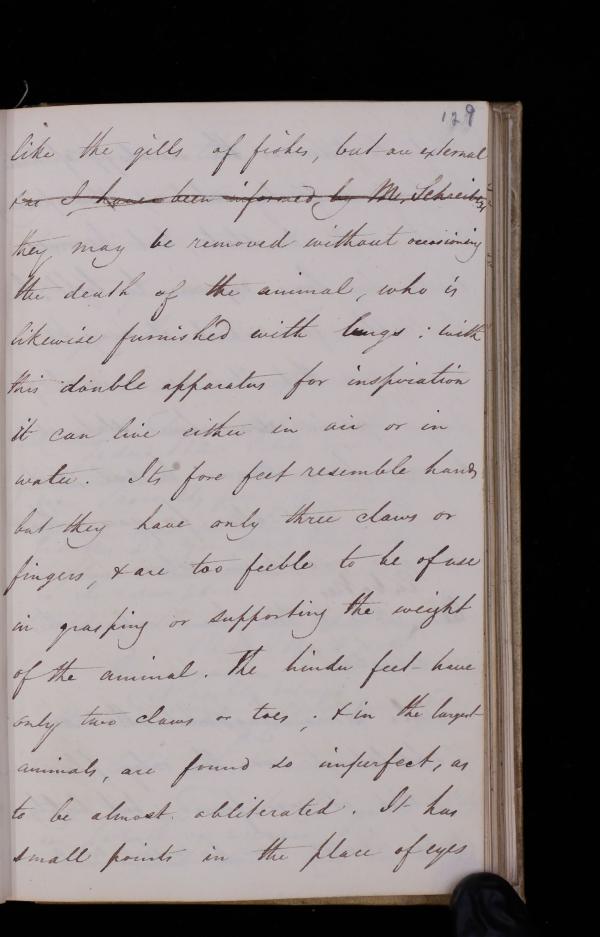 129
like the gills of fishes, but are external
& as I have been informed, by Mr. Schreibers
they may be removed without occasioning
the death of the animal, who is
likewise furnished with lungs : with
this double apparatus for inspiration
it can live either in air or in
water. Its fore feet resemble hands
but they have only three claws or
fingers, & are too feeble to be of use
in grasping or supporting the weight
of the animal. The hinder feet have
only two claws or toes ; & in the largest
animals, are found so imperfect, as
to be almost obliterated. It has
small points in the place of eyes